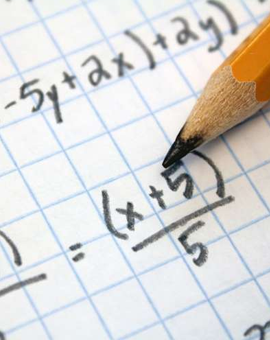 -5y+2x)+2y)
) = (x+5)
5